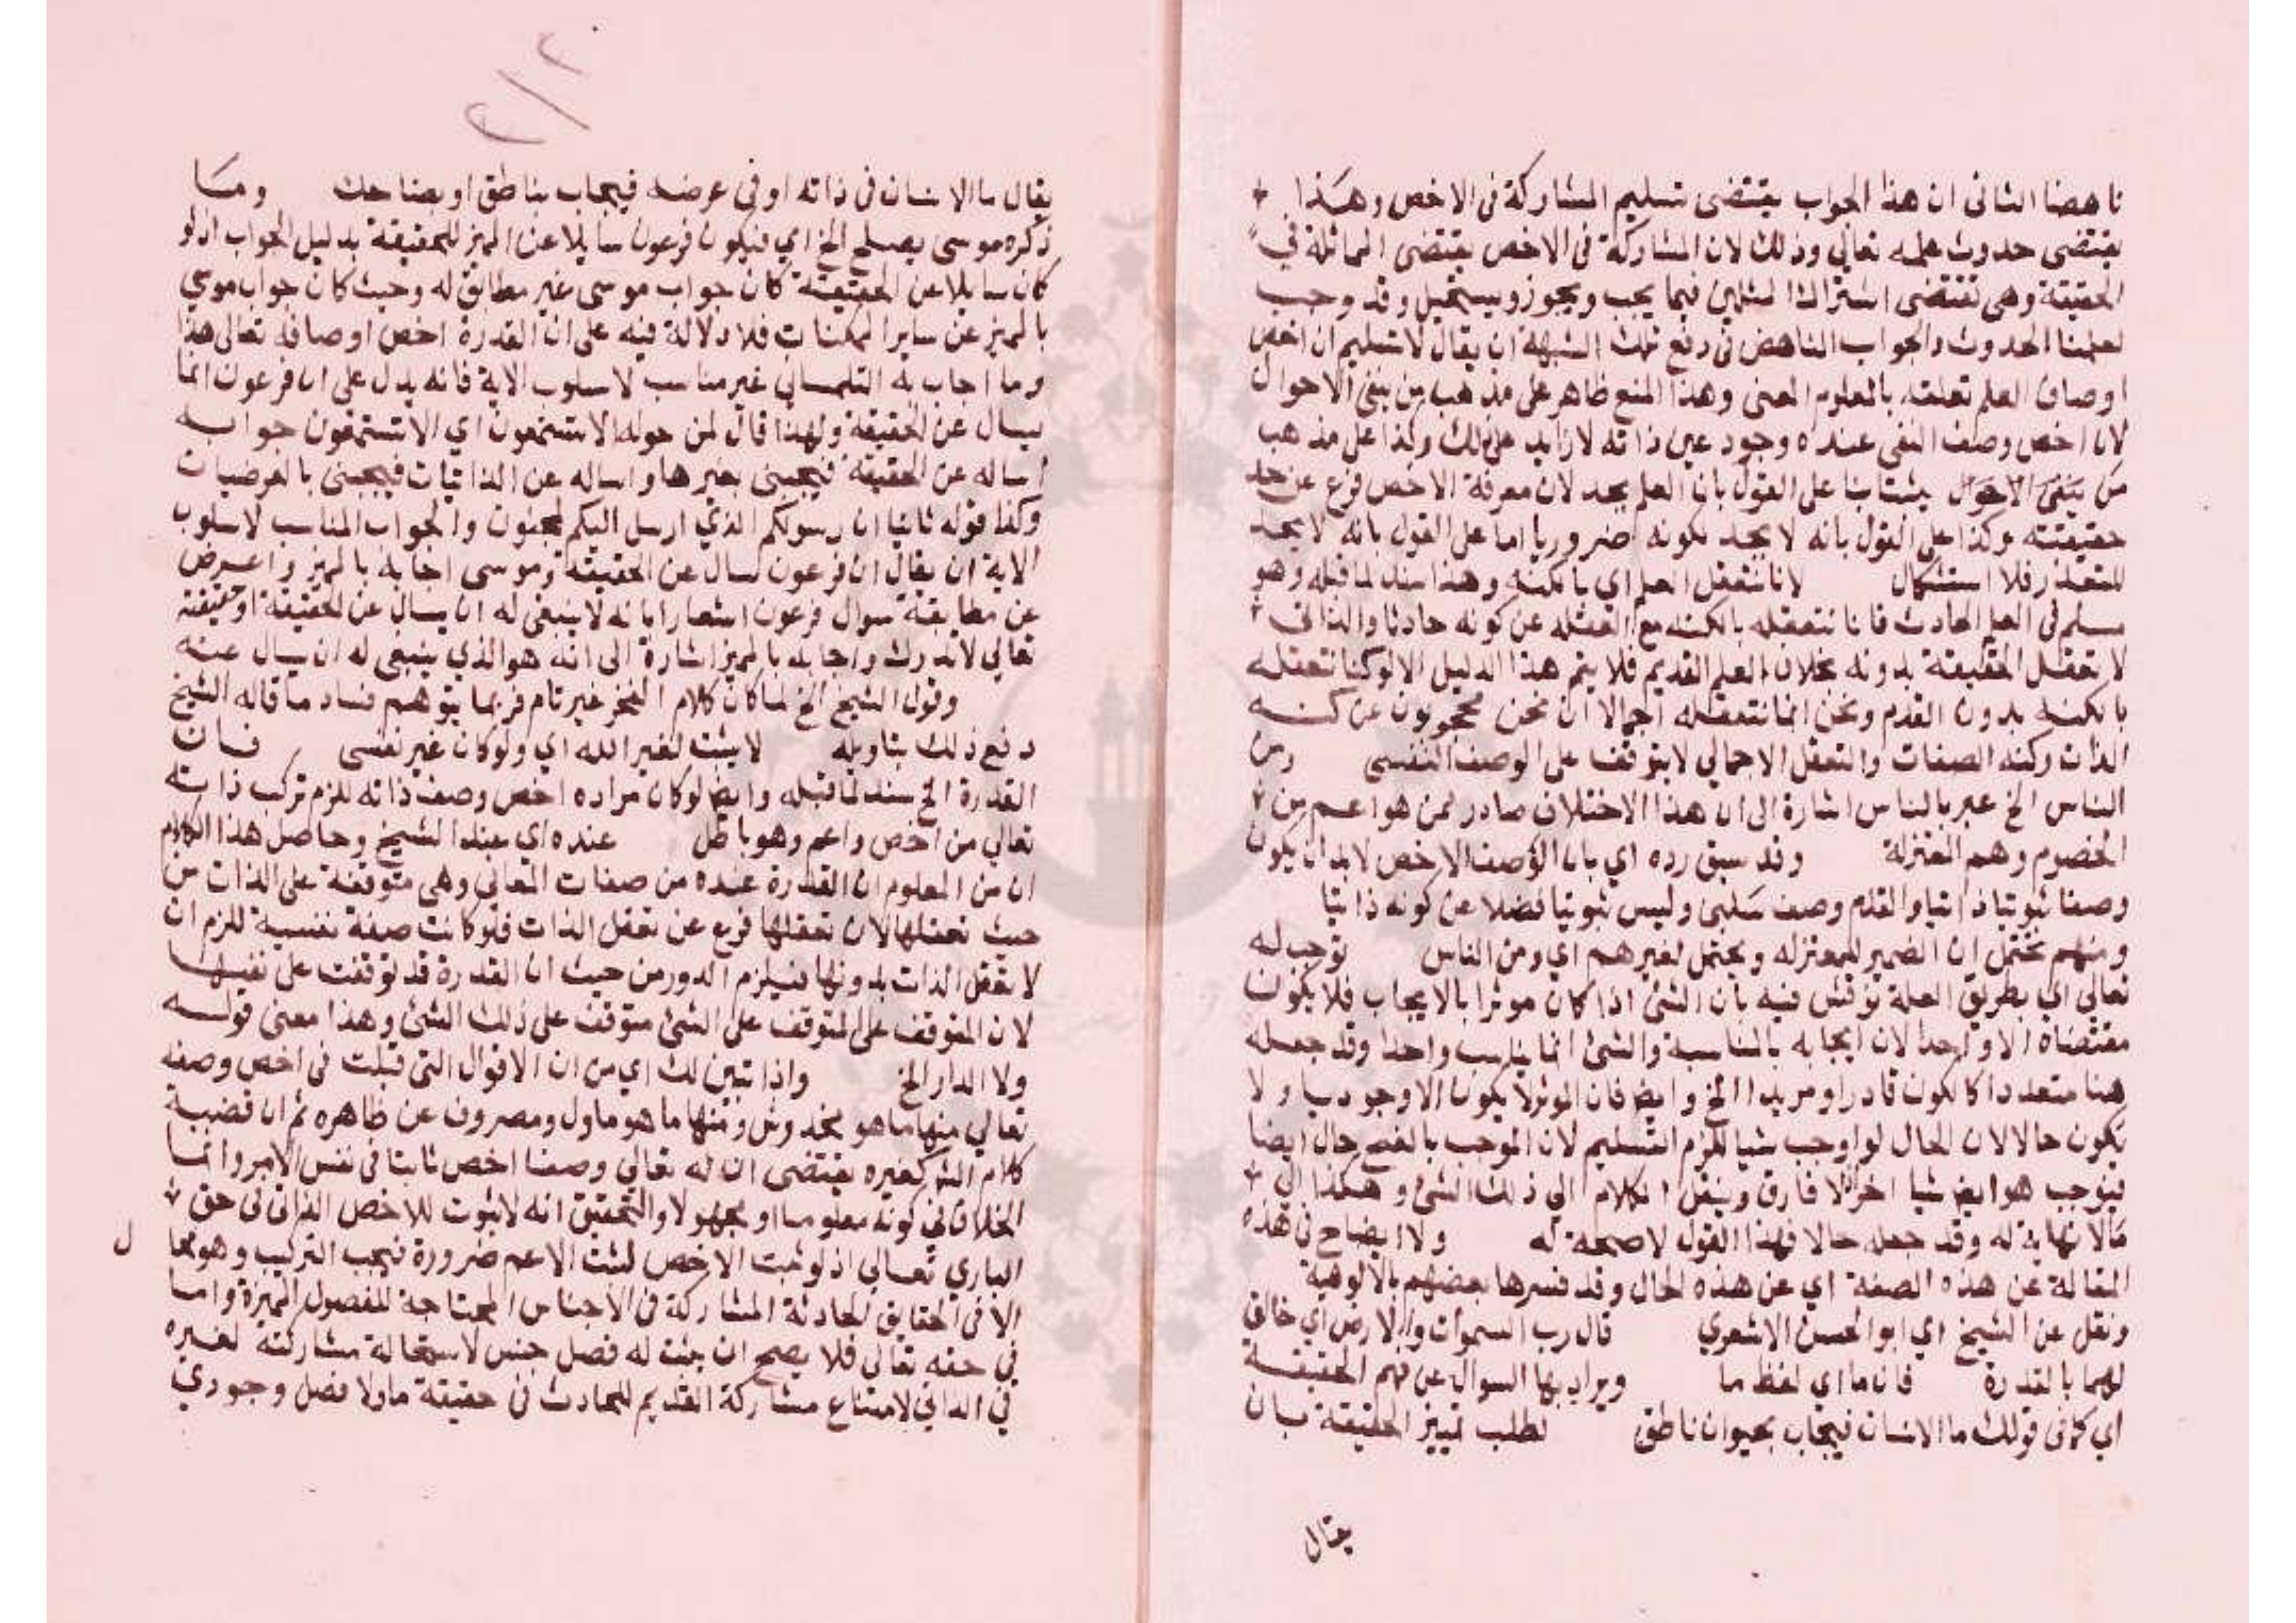 ناهضا الثانى ان هذا الجواب يقتضى تسليم المشاركة فى الاخص وهكذا
يقتضى حدوث علمه تعالي وذلك لان المشاركة فى الاخص يقتضى المماثلة في
الحقيقة وهى تقتضى اشتراك المثلين فيما يجب ويجوز ويستحيل وقد وجب
لعلمنا الحدوث والجواب الناهض فى دفع تلك الشبهة ان يقال لا تسليم ان اخص
اوصاف العلم تعلقه بالمعلوم المعنى وهذا المنع ظاهر على مذهب من ينفى الاحوال
لان اخص وصف النفى عنده وجود عين ذاته لا زايد على ذلك وكذا على مذهب
من ينفى الاحوال يثبتا بنا على القول بان العلم يحد لان معرفة الاخص فرع عن حد
حقيقتته وكذا على القول بانه لا يحد لكونه ضروريا اما على القول بانه لا يحد
للتعذر فلا استشكال لانا نتعقل العلم اي بالكنه وهذا سند لما قبله وهو
مسلم فى العلم الحادث فانا نتعقله بالكنه مع الغفله عن كونه حادثا والذاتى
لا تعقل الحقيقة بدونه بخلاف العلم القديم فلا يتم هذا الدليل الا لو كنا نتعقله
بالكنه بدون القدم ونحن انما نتعقله اجمالا اذ نحن محجوبون عن كنه
الذات وكنه الصفات والتعقل الاجمالي لا يتوقف على الوصف النفسى ومن
الناس الخ عبر بالناس اشارة الى ان هذا الاختلاف صادر لمن هو اعم من
الخصوم وهم المعتزلة وقد سبق رده اي بان الوصف الاخص لا بد ان يكون
وصفا ثبوتيا ذاتيا والقدم وصف سلبى وليس ثبوتيا فضلا عن كونه ذاتيا
ومنهم يحتمل ان الضمير للمعتزله ويحتمل لغيرهم اي ومن الناس توجب له
تعالى اي بطريق العلة نوقش فيه بان الشئ اذا كان موثرا بالايجاب فلا يكون
مقتضاه الا واحدا لان ايجابه بالمناسبة والشئ انما يناسب واحدا وقد جعله
هنا متعددا كالكون قادرا ومريدا الخ وايضا فان الموثر لا يكون الا وجوديا ولا
يكون حالا لان الحال لو اوجب شيا للزم التسليم لان الموجب بالفتح حال ايضا
فيوجب هو ايضا شيا اخر اذ لا فارق وينقل الكلام الي ذلك الشئ وهكذا الى
مالا نهاية له وقد جعله حالا فهذا القول لا صحة له ولا ايضاح فى هذه
المقالة عن هذه الصفة اي عن هذه الحال وقد فسرها بعضهم بالالوهية
ونقل عن الشيخ اي ابو الحسن الاشعري قال رب السموات والارض اي خالق
لهما بالقدرة فان ما اي لفظ ما ويراد بها السوال عن فهم الحقيقة
اي كما فى قولك ما الانسان فيجاب بحيوان ناطق لطلب تمييز الحقيقة بان
يقال
يقال ما الانسان فى ذاته او فى عرضه فيجاب بناطق او بضاحك وما
ذكره موسى يصلح الخ اي فيكون فرعون سايلا عن المميز للحقيقة بدليل الجواب اذ لو
كان سايلا عن الحقيقة كان جواب موسى غير مطابق له وحيث كان جواب موسي
بالمميز عن ساير الممكنات فلا دلالة فيه على ان القدرة اخص اوصافه تعالى هذا
وما اجاب به التلمسانى غير مناسب لاسلوب الاية فانه يدل على ان فرعون انما
يسال عن الحقيقة ولهذا قال لمن حوله الا تستمعون اي الا تستمعون جوابه
اساله عن الحقيقة فيجيبنى بغيرها واساله عن الذاتيات فيجيبنى بالعرضيات
وكذا قوله ثانيا ان رسولكم الذي ارسل اليكم لمجنون والجواب المناسب لاسلوب
الاية ان يقال ان فرعون لسال عن الحقيقة وموسى اجابه بالمميز واعرض
عن مطابقة سوال فرعون اشعارا بانه لا ينبغى له ان يسال عن الحقيقة اذ حقيقته
تعالي لا تدرك واجابه بالمميز اشارة الى انه هو الذي ينبغى له ان يسال عنه
وقول الشيخ الخ لما كان كلام الفخر غير تام فربما يتوهم فساد ما قاله الشيخ
دفع ذلك بتاويله لا يثبت لغير الله اي ولو كان غير نفسى فان
القدرة الخ سند لما قبله وايضا لو كان مراده اخص وصف ذاته للزم تركب ذاته
تعالي من اخص واعم وهو باطل عنده اي عند الشيخ وحاصل هذا الكلام
ان من المعلوم ان القدرة عنده من صفات المعاني وهى متوقفة على الذات من
حيث تعقلها لان تعقلها فرع عن تعقل الذات فلو كانت صفة نفسية للزم ان
لا تعقل الذات بدونها فيلزم الدور من حيث ان القدرة قد توقفت على نفسها
لان المتوقف على المتوقف على الشئ متوقف على ذلك الشئ وهذا معنى قوله
ولا الدار الخ واذا تبين لك اي من ان الاقوال التى قيلت فى اخص وصفه
تعالي منها ما هو مخدوش ومنها ما هو ماول ومصروف عن ظاهره ثم ان قضية
كلام الش كغيره يقتضى ان له تعالي وصفا اخص ثابتا فى نفس الامر وانما
الخلاف فى كونه معلوما او مجهولا والتحقيق انه لا ثبوت للاخص الذاتى فى حق
الباري تعالى اذ لو ثبت الاخص لثبت الاعم ضرورة فيجب التركيب وهو محال
الا فى الحقايق الحادثة المشاركة فى الاجناس المحتاجة للفصول المميزة واما
فى حقه تعالى فلا يصح ان يثبت له فصل جنس لاستحالة مشاركته لغيره
في الذاتي لامتناع مشاركة القديم للحادث فى حقيقة ما ولا فصل وجودي